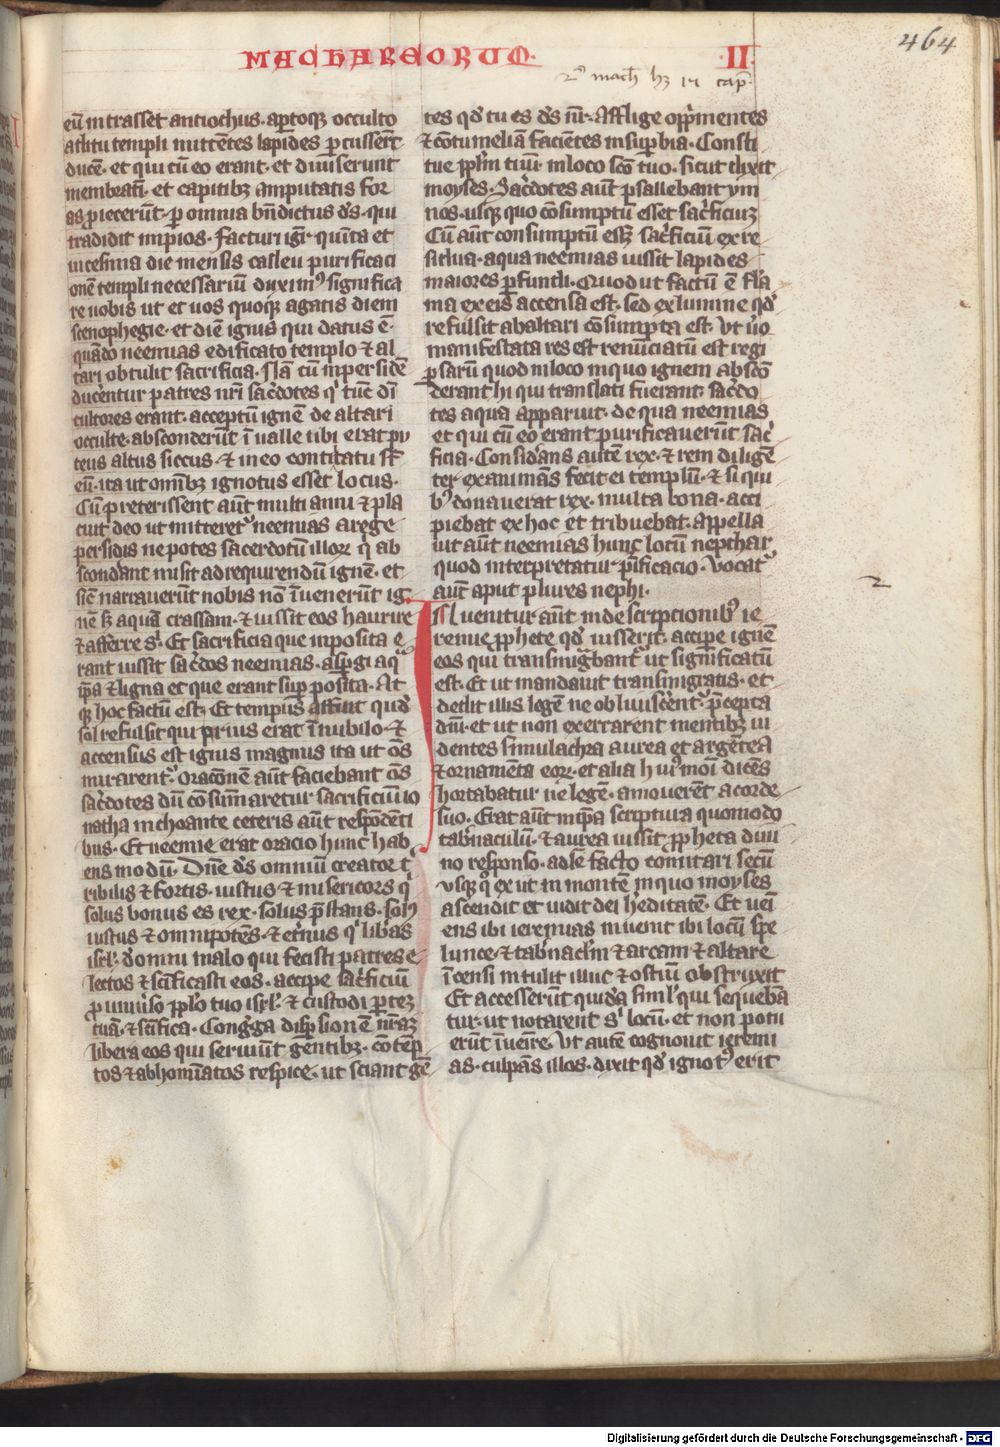 MACHABEORUM · II ·
464
2ꝰ mach̄ hꝫ 15 cap̄
eū intrasset antiochus · ap̄toqꝫ occulto
aditu templi mittētes lapides ꝑcusserūt
ducē · et qui cū eo erant · et diuiserunt
membratī · et capitibꝫ amputatis for
as ꝓiecerūt · ꝑ omnia bn̄dictus ds̄ · qui
tradidit impios · Facturi igr̄ quīta et
uicesima die mensis casleu purificaci
onē templi necessariū duximꝰ significa
re uobis ut et uos quoqꝫ agatis diem
scenophegie · et diē ignis qui datus ē ·
quādo neemias edificato templo ⁊ al
tari obtulit sacrificia · Nā cū in persidē
ducerentur patres nr̄i sac̄dotes qͥ tūc dī
cultores erant · acceptū ignē de altari
occulte · absconderūt ī ualle ubi erat pu
teus altus siccus · ⁊ in eo contutatu st̄
eū · ita ut om̄ibꝫ ignotus esset locus ·
Cū preterissent aūt multi anni ⁊ pla
cuit deo ut mitteretᷣ neemias a rege
persidis nepotes sacerdotū illoꝝ qͥ ab
scondāt misit ad requirendū ignē · et
sic̄ narrauerūt nobis nō īuenerūt ig
nē sꝫ aquā crassam · ⁊ iussit eos haurire
⁊ afferre sͥ · Et sacrificia que inposita e
rant iussit sac̄dos neemias · asꝑgi aqͣ
ip̄a ⁊ ligna et que erant suꝑ posita · At
qꝫ hoc factū est · Et tempus affuit quo
sol refulsit qui prius erat ī nubilo · ⁊
accensus est ignis magnus ita ut om̄s
mirarentᷣ · oracōnē aūt faciebant om̄s
sac̄dotes dū cōsūmaretur sacrificiū io
natha inchoante ceteris aūt respōdēti
bus · Et neemie erat oracio hunc hab
ens modū · Dn̄e ds̄ omniū creator t̄
ribilis ⁊ fortis · iustus ⁊ misericors qͥ
solus bonus es rex · solus p̄stans · solꝰ
iustus ⁊ omnipotēs · ⁊ et̄nus qͥ libas
isrl̄ · d̓ omni malo qui fecisti patres e
lectos ⁊ sc̄ificasti eos · accipe sac̄ficiū
ꝓ uniūso ppl̄o tuo isrl̄ · ⁊ custodi ꝑtē
tuā · ⁊ sc̄ifica · Congrega disꝑsionē nrām
libera eos qui seruiūt gentibꝫ · cōtēp
tos ⁊ abhomīatos respice · ut sciant gē
tes qd̄ tu es ds̄ nr̄ · Afflige opp̄mentes
⁊ cōtumeliā facientes in suꝑbia · Consti
tue ppl̄m tuū in loco sc̄o tuo · sicut dixit
moyses · Sac̄dotes aūt psallebant ym
nos · usqꝫ quo cōsumptū esset sac̄ficiū
Cū aūt consumptū essꝫ sac̄ficiū ex re
sidua · aqua neemias iussit lapides
maiores ꝑfundi · Quod ut factū ē fla
ma ex eis accensa est · sed ex lumine qd̄
refulsit ab altari cōsumpta est · Ut ūo
manifestata res est renūciatū est regi
ꝑsarū quod in loco in quo ignem absco
derant hi qui translati fuerant · sac̄do
tes aqua apparuit · de qua neemias
et qui cū eo erant purificauerūt sac̄
ficia · Considans autē rex · ⁊ rem diligē
ter examinās fecit ei templū · ⁊ si qui
bꝰ donauerat rex · multa bona · acci
piebat ex hoc et tribuebat · appella
uit aūt neemias hunc locū nepthar
quod interpretatur pificacio · Vocatᷣ
aūt aput plures nephi ·
2
Inuenitur aūt in descriptionibꝰ ie
remie ꝓphete qd̄ iusserit · accipe ignē
eos qui transmigbantᷣ ut significatū
est · Et ut mandauit transmigratis · et
dedit illis legē ne obliuiscerentᷣ p̄cepta
dn̄i · et ut non exerrarent mentibꝫ ui
dentes simulachra aurea et argētea
⁊ ornamēta eoꝝ · et alia huiꝰmoi dicēs
hortabatur ne legē · amouerēt a corde
suo · Erat aūt in ip̄a scriptura quomodo
tab̄naculū · ⁊ aurea iussit ꝓpheta diui
no responso · ad se facto comitari secū
usqꝫ qͦ exiit in montē in quo moyses
ascendit et uidit dei heditatē · Et ueī
ens ibi ieremias inuenit ibi locū spe
lunce · ⁊ tab̄nacl̄m ⁊ arcam ⁊ altare
īcensi intulit illuc ⁊ ostiū obstruxit
Et accesserūt quidā simĺ qui sequebā
tur · ut notarent sͥ locū · et non potu
erūt īuenīre · Ut autē cognouit ieremi
as · culpās illos · dixit qd̄ ignotꝰ erit
Digitalisierung gefördert durch die Deutsche Forschungsgemeinschaft - DFG